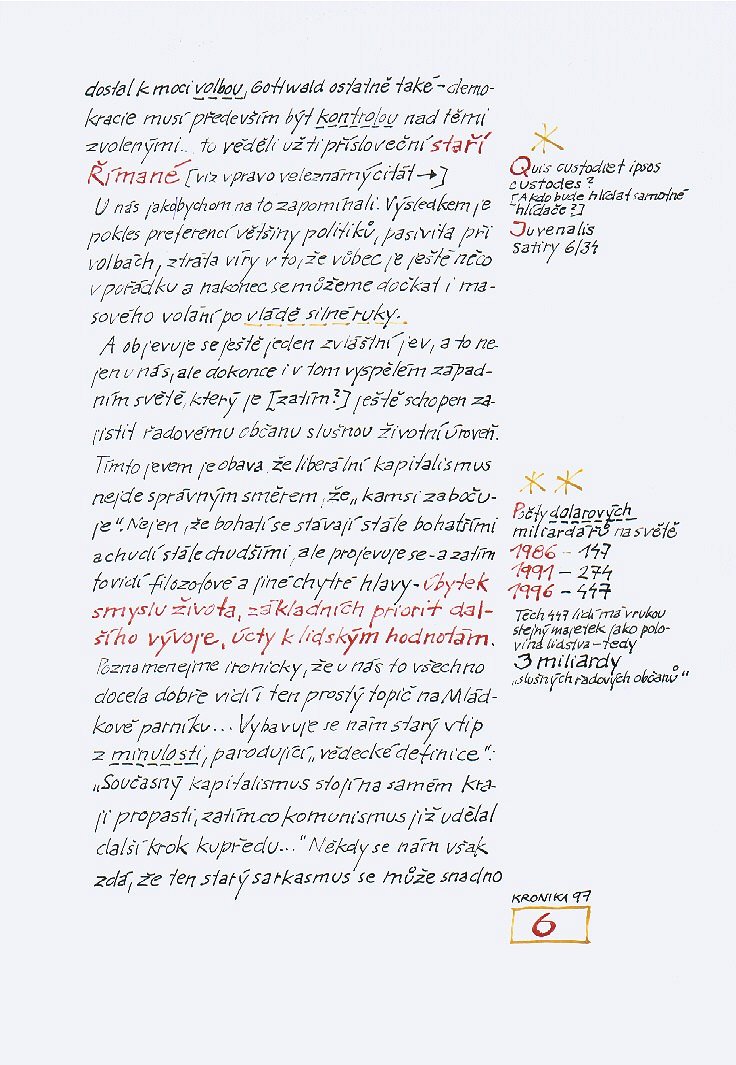 dostal k moci volbou, Gottwald ostatně také – demo-
kracie musí především být kontrolou nad těmi
zvolenými... to věděli už ti přísloveční staří
Římané [viz vpravo veleznámý citát →]
U nás jakobychom na to zapomínali. Výsledkem je
pokles preferencí většiny politiků, pasivita při
volbách, ztráta víry v to, že vůbec je ještě něco
v pořádku a nakonec se můžeme dočkat i ma-
sového volání po vládě silné ruky.
A objevuje se ještě jeden zvláštní jev, a to ne-
jen u nás, ale dokonce i v tom vyspělém západ-
ním světě, který je [zatím?] ještě schopen za-
jistit řadovému občanu slušnou životní úroveň.
Tímto jevem je obava, že liberální kapitalismus
nejde správným směrem, že „kamsi zaboču-
je“. Nejen, že bohatí se stávají stále bohatšími
a chudí stále chudšími, ale projevuje se – a zatím
to vidí filozofové a jiné chytré hlavy – úbytek
smyslu života, základních priorit dal-
šího vývoje, úcty k lidským hodnotám.
Poznamenejme ironicky, že u nás to všechno
docela dobře vidí i ten prostý topič na Mlád-
kově parníku... Vybavuje se nám starý vtip
z minulosti, parodující „vědecké definice“:
„Současný kapitalismus stojí na samém kra-
ji propasti, zatím co komunismus již udělal
další krok kupředu...“ Někdy se nám však
zdá, že ten starý sarkasmus se může snadno
Quis custodiet ipsos
custodes?
[A kdo bude hlídat samotné
hlídače?]
Juvenalis
Satiry 6/34
Počty dolarových
miliardářů na světě
1986 – 147
1991 – 274
1996 – 447
Těch 447 lidí má v rukou
stejný majetek jako polo-
vina lidstva – tedy
3 miliardy
„slušných řadových občanů“
KRONIKA 97
6